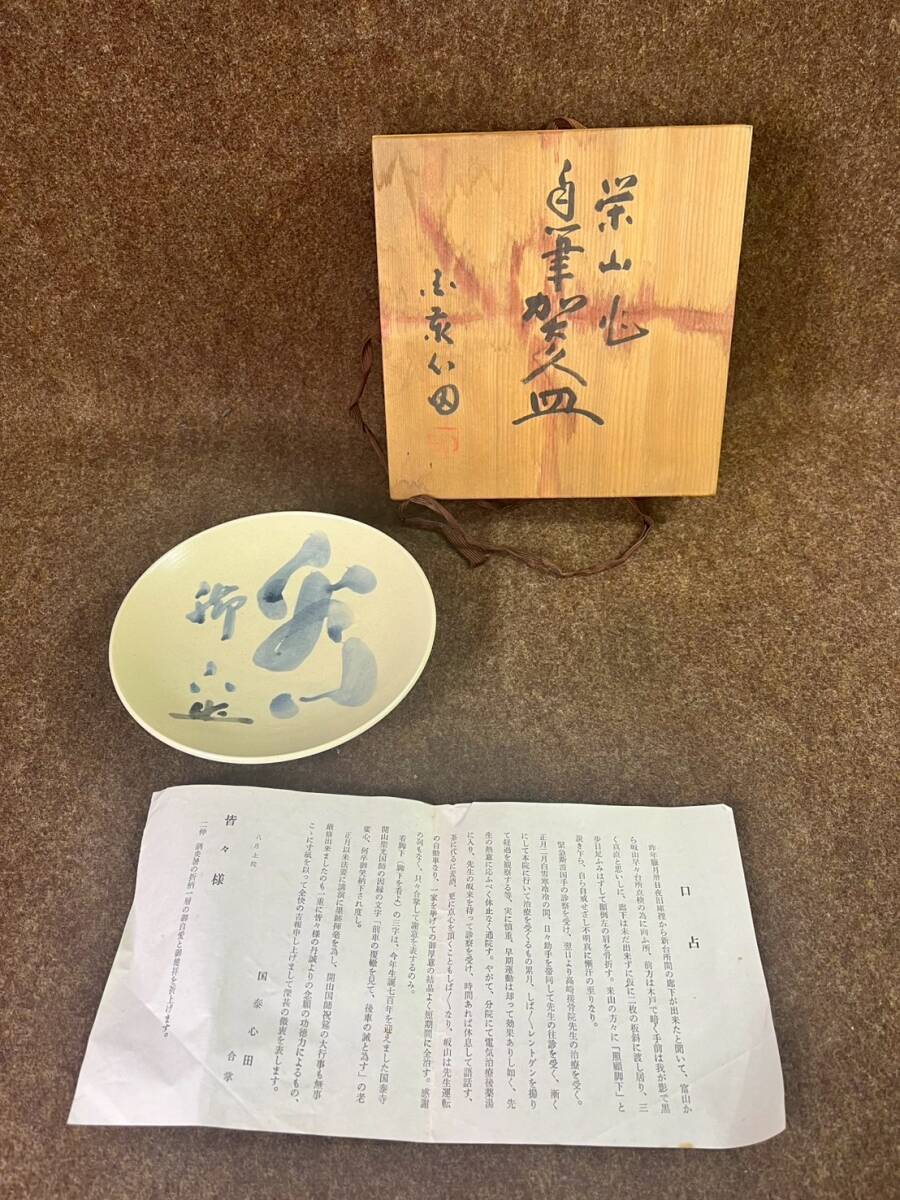 栄山作
自筆賀久皿
国泰心田
看
脚下
口占
昨年臘月卅日夜旧庫裡から新台所間の廊下が出来たと聞いて、富山か
ら岐山早々台所点検の為に向ふ所、前方は木戸で暗く手前は我が影で黒
く真直と思いしに、廊下は未だ出来ずに仮に二枚の板斜に渡し居り、三
歩目足ふみはずして顚倒左の肩を骨折す。来山の方々に「照顧脚下」と
説き乍ら、自ら自戒せざし不明真に慚汗の至りなり。
緊急斎国手の診察を受け、翌日より高崎接骨院先生の治療を受く。
正月二月白雪寒冷の間、日々助手を帯同して先生の往診を受く、漸く
にして本院に行いて治療を受くるもの累月、しば〱レントゲンを撮り
て経過を観察する等、実に慎重、早期運動は却って効果ありし如く、先
生の熱意に応ふべく休止なく通院す。やがて、分院にて電気治療後薬湯
に入り、先生の帰来を待って診察を受け、時間あれば休息して語話す、
茶に代るに麦酒、更に点心を頂くこともしば〱なり、帰山は先生運転
の自動車なり、一家を挙げての御厚意の結晶よく短期間に全治す。感謝
の何もなく、只々合掌して謝意を表するのみ。
看脚下(脚下を看よ)の三字は、今年生誕七百年を迎えました国泰寺
開山慈光国師の因縁の文字「前車の覆轍を見て、後車の誡と為す」の老
婆心、何卒御笑納下され度し。
正月以来法要に講演に墨跡揮毫を為し、開山国師祝筵の大行事も無事
厳修出来ましたのも一重に皆々様の丹誠よりの念願の功徳力によるもの、
こゝに寸紙を以って全快の吉報申し上げまして深甚の微衷を表します。
八月上院
国泰心田 合掌
皆々様
二伸 酷暑の折柄一層の御自愛と御健祥を祈上げます。